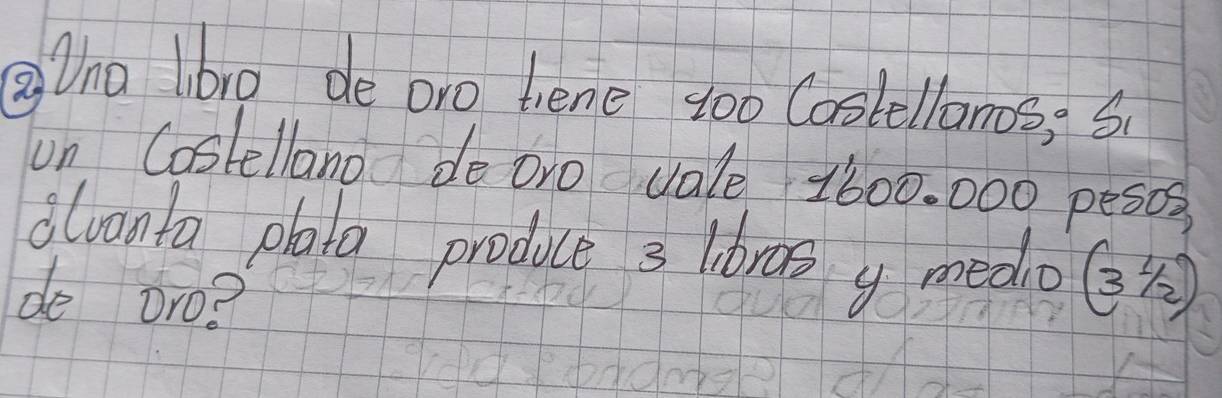 ② Una libra de oro tiene 100 Castellanos; Si
un Castellano de Oro vale 1'600.000 pesos,
¿Cuanta plata produce 3 libras y medio (3 1/2)
de oro?